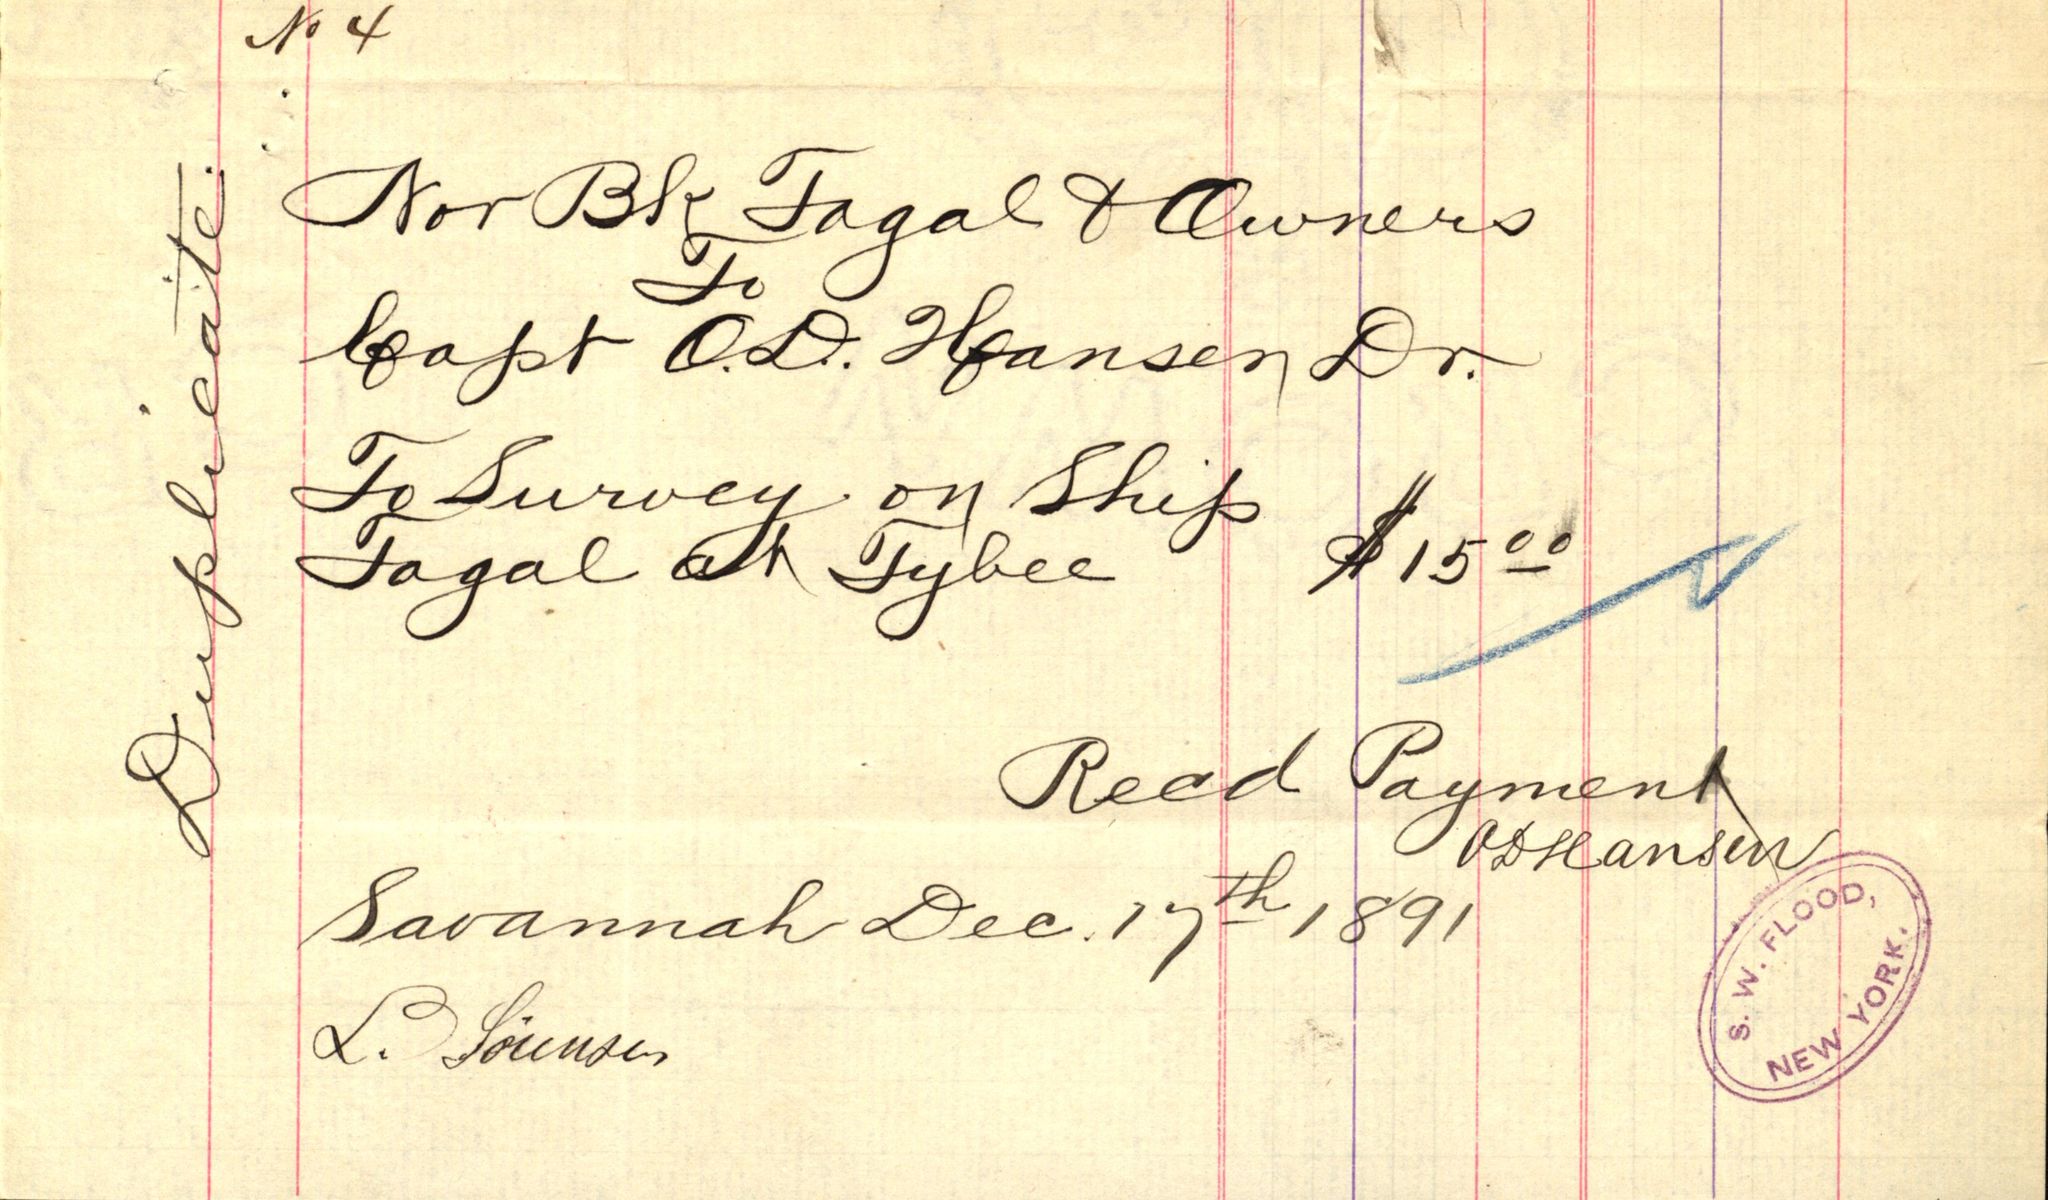 No 4
Duplicate.
Nor Bk Tagal & Owners
To
Capt O.D. Hansen Dr.
To Survey on Ship
Tagal at Tybee $15 00
Recd Payment
O D Hansen
Savannah Dec. 17th 1891
L. Sörensen
S. W. FLOOD,
NEW YORK.